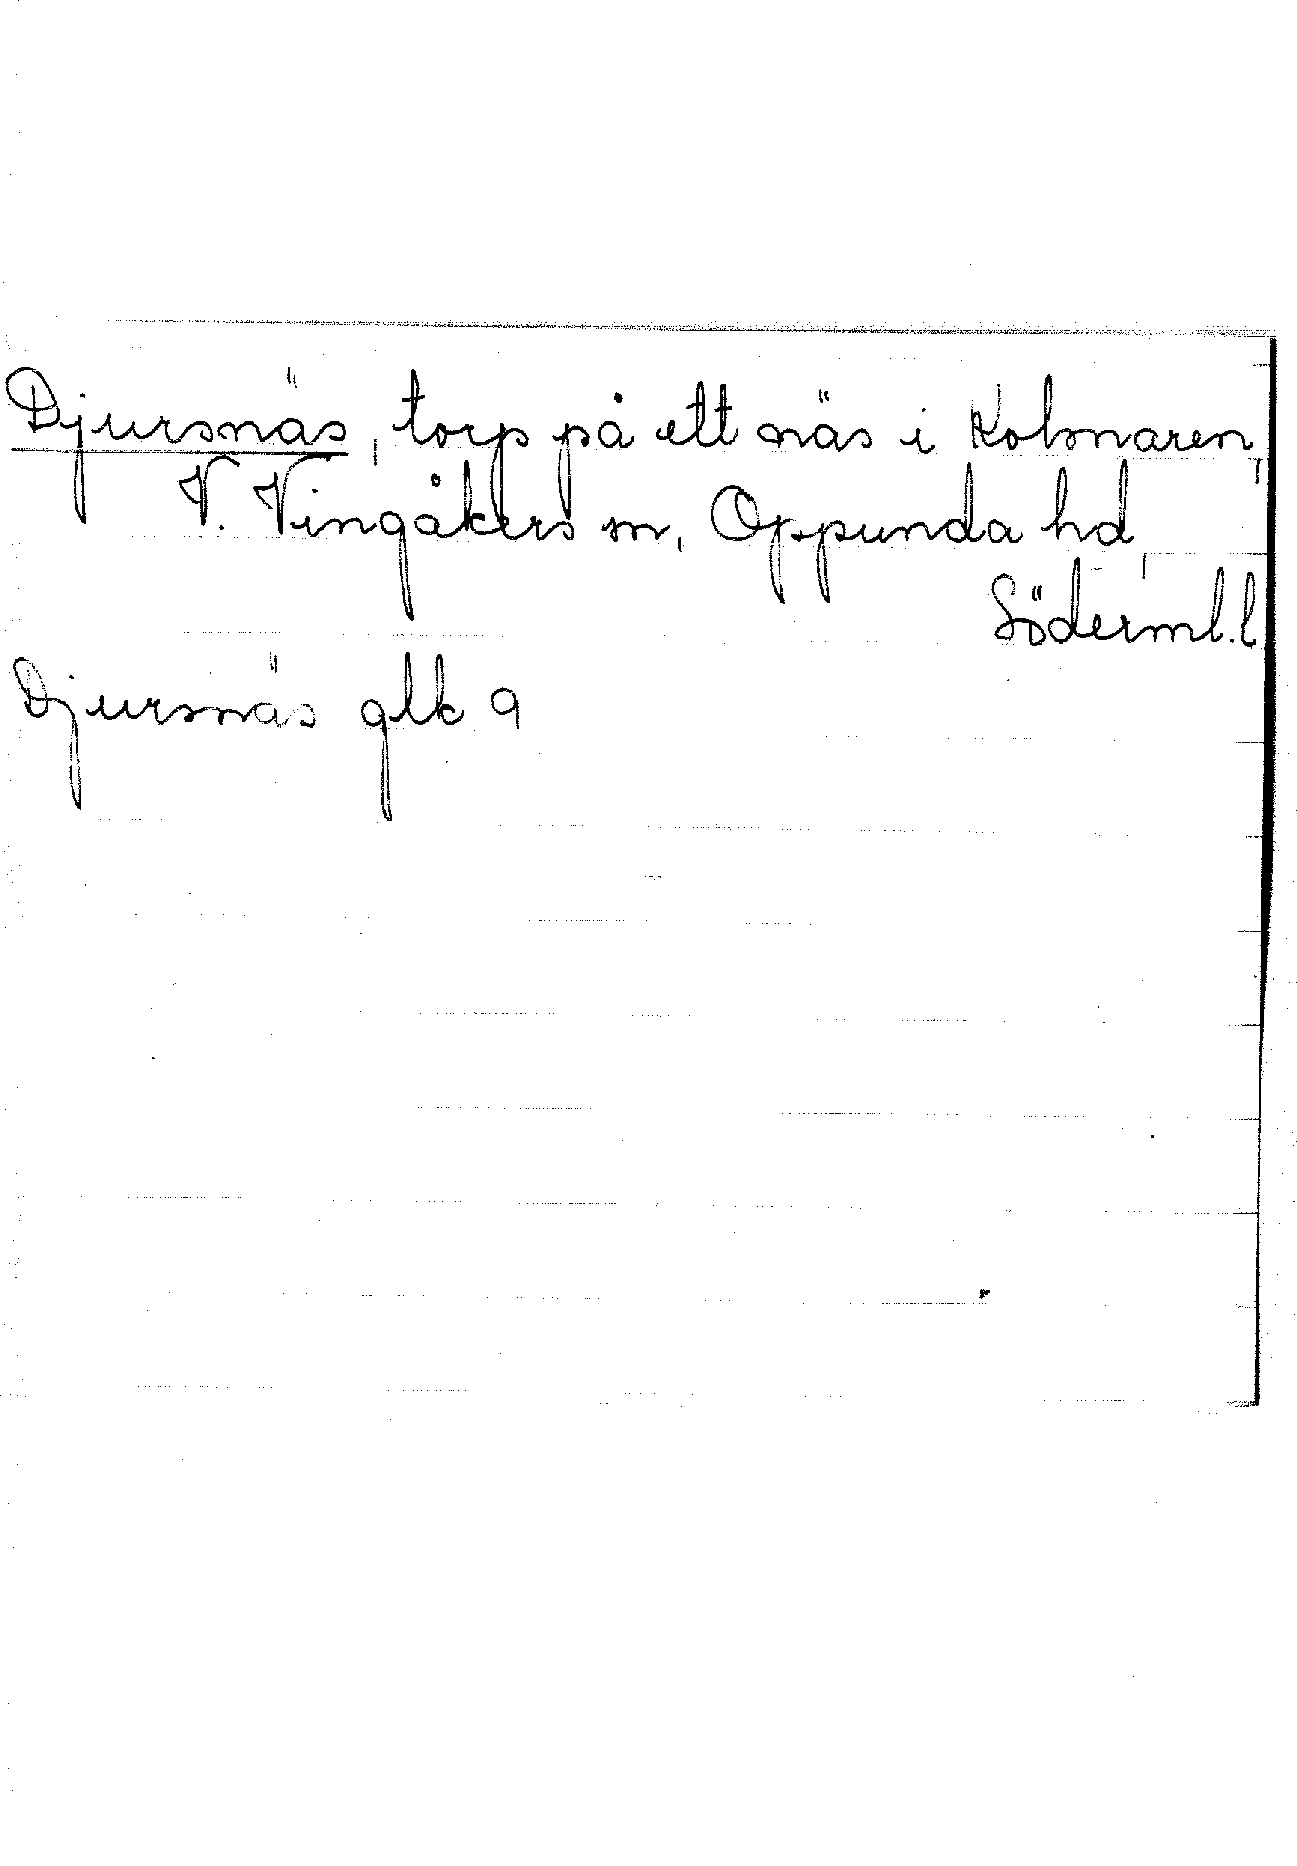 Djursnäs, torp på ett näs i Kolsnaren,
V. Vingåkers sn, Oppunda hd,
Söderml. l
Djursnäs glk 9